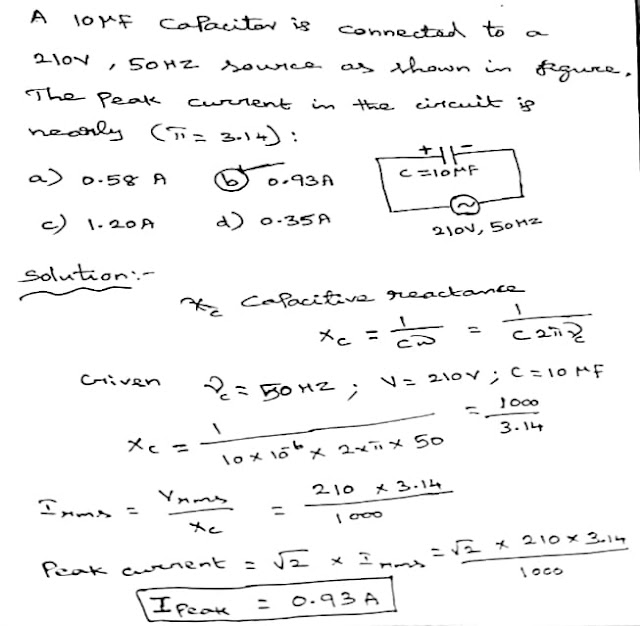 A 10μF capacitor is connected to a
210V, 50HZ source as shown in figure.
The Peak current in the circuit is
nearly (π = 3.14) :
a) 0.58 A b) 0.93A
c) 1.20A d) 0.35A
+ -
C=10MF
210V, 50HZ
Solution:-
Xc Capacitive reactance
Xc = 1/Cω = 1/C2πνc
Given νc = 50HZ ; V = 210V ; C = 10 MF
Xc = 1/10×10^-6 × 2×π× 50 = 1000/3.14
Irms = Vrms/Xc = 210 × 3.14/1000
Peak current = √2 × Irms = √2 × 210 × 3.14/1000
IPeak = 0.93A